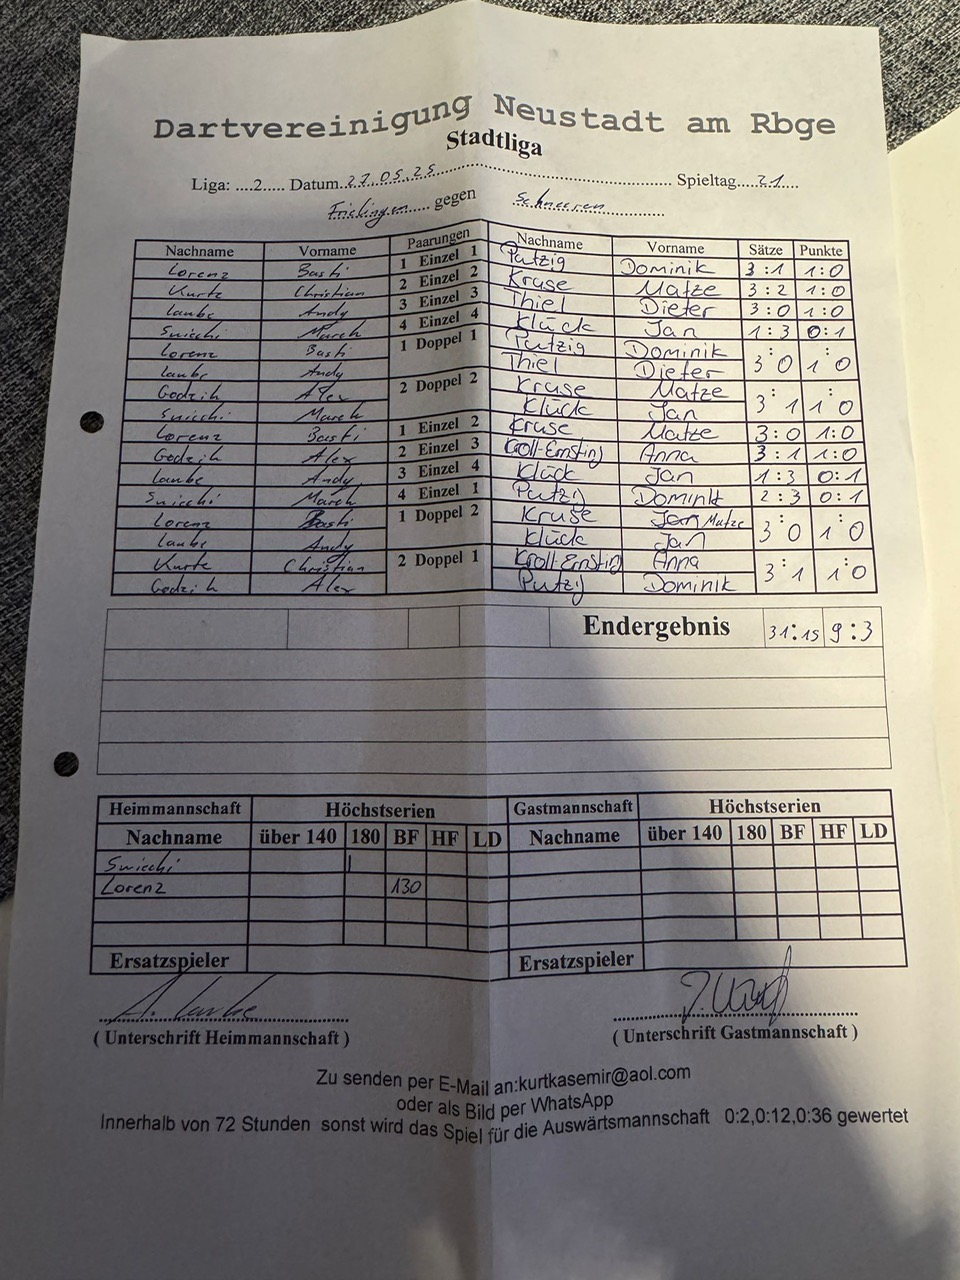 Dartvereinigung Neustadt am Rbge
Stadtliga
Liga: ....2..... Datum 27.05.25 Spieltag....21....
Frielingen gegen Schneeren
Nachname Vorname Paarungen Nachname Vorname Sätze Punkte
Lorenz Basti 1 Einzel 1 Putzig Dominik 3:1 1:0
Kurte Christian 2 Einzel 2 Kruse Matze 3:2 1:0
Laube Andy 3 Einzel 3 Thiel Dieter 3:0 1:0
Swiechi March 4 Einzel 4 Klück Jan 1:3 0:1
Lorenz Basti 1 Doppel 1 Putzig Dominik 3:0 1:0
Laube Andy Thiel Dieter
Godzik Alex 2 Doppel 2 Kruse Matze 3:1 1:0
Swiechi March Klück Jan
Lorenz Basti 1 Einzel 2 Kruse Matze 3:0 1:0
Godzik Alex 2 Einzel 3 Kroll-Ernsting Anna 3:1 1:0
Laube Andy 3 Einzel 4 Klück Jan 1:3 0:1
Swiechi March 4 Einzel 1 Putzig Dominik 2:3 0:1
Lorenz Basti 1 Doppel 2 Kruse Matze 3:0 1:0
Laube Andy Klück Jan
Kurte Christian 2 Doppel 1 Kroll-Ernsting Anna 3:1 1:0
Godzik Alex Putzig Dominik
Endergebnis 31:15 9:3
Heimmannschaft Höchstserien Gastmannschaft Höchstserien
Nachname über 140 180 BF HF LD Nachname über 140 180 BF HF LD
Swiechi |
Lorenz 130
Ersatzspieler Ersatzspieler
A. Laube
( Unterschrift Heimmannschaft ) ( Unterschrift Gastmannschaft )
Zu senden per E-Mail an:kurtkasemir@aol.com
oder als Bild per WhatsApp
Innerhalb von 72 Stunden sonst wird das Spiel für die Auswärtsmannschaft 0:2,0:12,0:36 gewertet